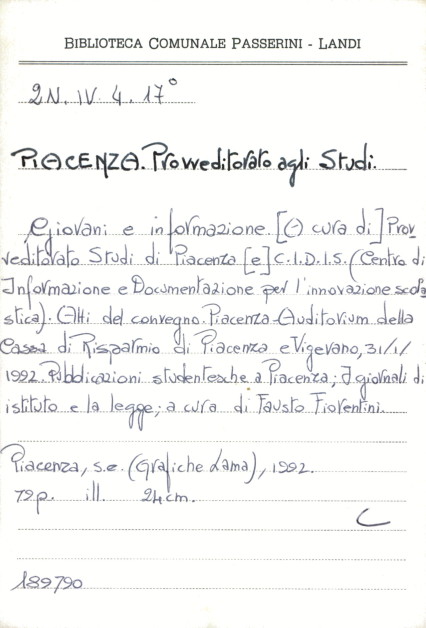 BIBLIOTECA COMUNALE PASSERINI - LANDI
2N. IV. 4. 17°
PIACENZA. Provveditorato agli Studi.
Giovani e informazione. [A cura di] Prov
veditorato Studi di Piacenza [e] C.I.D.I.S. (Centro di
Informazione e Documentazione per l'innovazione scola
stica). Atti del convegno. Piacenza-Auditorium della
Cassa di Risparmio di Piacenza e Vigevano, 31/1/
1992. Pubblicazioni studentesche a Piacenza; I giornali di
istituto e la legge; a cura di Fausto Fiorentini.
Piacenza, s.e. (Grafiche Lama), 1992.
79p. ill. 24cm.
C
189790